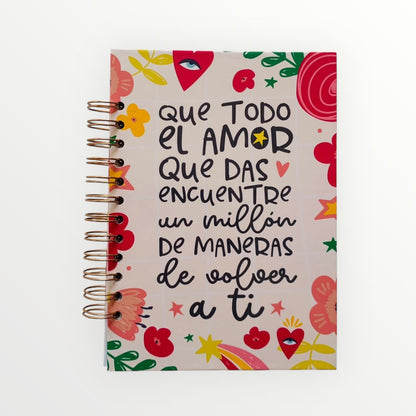 QUE TODO
EL AMOR
QUE DAS
ENCUENTRE
un millón
DE MANERAS
de volver
a ti